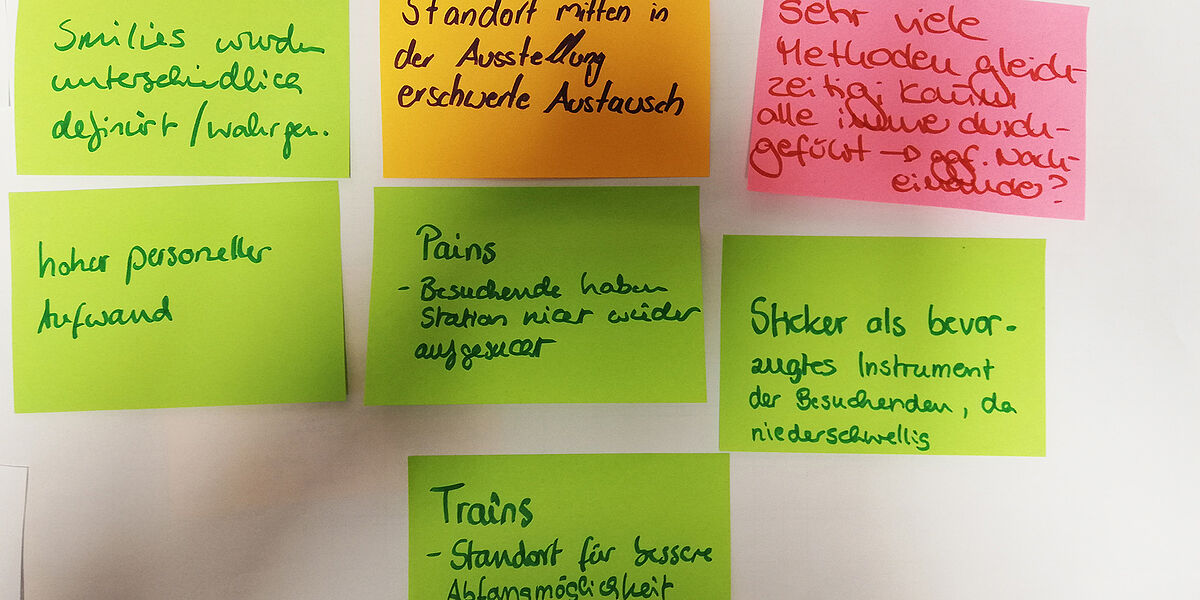 Smilies wurden
unterschiedlich
definiert / wahrgen.
Standort mitten in
der Ausstellung
erschwerte Austausch
Sehr viele
Methoden gleich-
zeitig, kaum
alle immer durch-
geführt → ggf. Nach-
einander?
hoher personeller
Aufwand
Pains
- Besuchende haben
Station nicht wieder
aufgesucht
Sticker als bevor-
zugtes Instrument
der Besuchenden, da
niederschwellig
Trains
- Standort für bessere
Abfangmöglichkeit